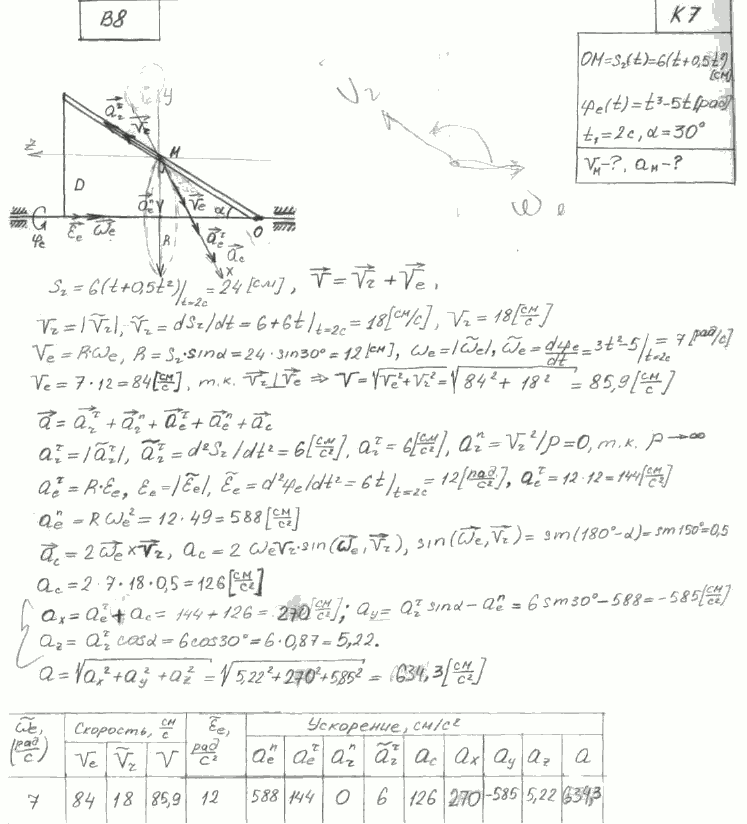 В8
К7
OM=S₂(t)=6(t+0,5t²)
[см]
φe(t)=t³-5t [рад]
t₁=2c, α=30°
VM-?, aM-?
y
z
M
D
α
O
R
x
Vr
ωe
Sr=6(t+0,5t²)|t=2c=24[см], V̄=V̄r+V̄e,
Vr=|Ṽr|, Ṽr=dSr/dt=6+6t|t=2c=18[см/с], Vr=18[см/с]
Ve=R·ωe, R=Sr·sinα=24·sin30°=12[см], ωe=|ω̃e|, ω̃e=dφe/dt=3t²-5|t=2c=7[рад/с]
Ve=7·12=84[см/с], т.к. V̄r⊥V̄e ⇒ V=√(Ve²+Vr²)=√(84²+18²)=85,9[см/с]
ā=ārτ+ārn+āeτ+āen+āc
arτ=|ãrτ|, ãrτ=d²Sr/dt²=6[см/с²], arτ=6[см/с²], arn=Vr²/ρ=0, т.к. ρ→∞
aeτ=R·εe, εe=|ε̃e|, ε̃e=d²φe/dt²=6t|t=2c=12[рад/с²], aeτ=12·12=144[см/с²]
aen=Rωe²=12·49=588[см/с²]
āc=2ω̄e×V̄r, ac=2ωeVr·sin(ω̄e,V̄r), sin(ω̄e,V̄r)=sin(180°-α)=sin150°=0,5
ac=2·7·18·0,5=126[см/с²]
ax=aeτ+ac=144+126=270[см/с²]; ay=arτ sinα-aen=6sin30°-588=-585[см/с²]
az=arτ cosα=6cos30°=6·0,87=5,22.
a=√(ax²+ay²+az²)=√(5,22²+270²+585²)=634,3[см/с²]
ω̃e, [рад/с] Скорость, см/с ε̃e, рад/с² Ускорение, см/с²
Ve Ṽr V aen aeτ arn ãrτ ac ax ay az a
7 84 18 85,9 12 588 144 0 6 126 270 -585 5,22 634,3